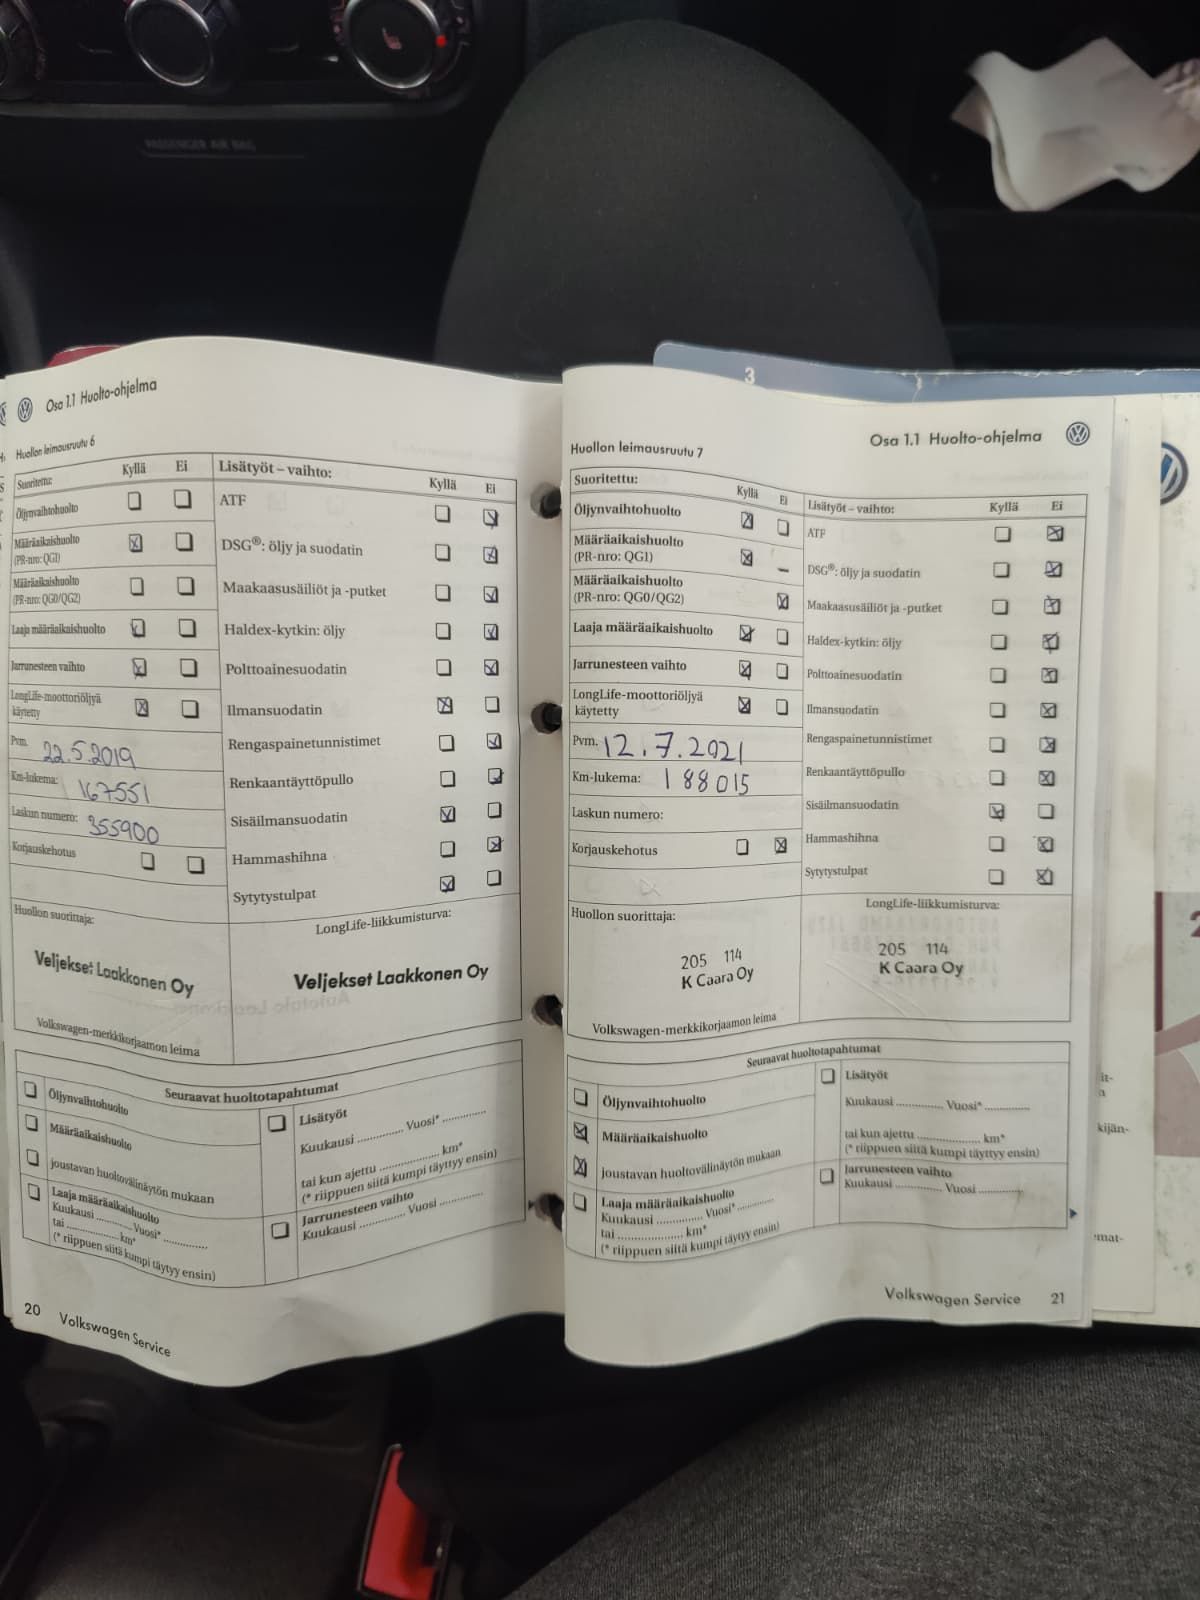 PASSENGER AIR BAG
3
Osa 1.1 Huolto-ohjelma
Huollon leimausruutu 6
Suoritettu:
Kyllä
Ei
Öljynvaihtohuolto
Määräaikaishuolto
(PR-nro: QG1)
Määräaikaishuolto
(PR-nro: QG0/QG2)
Laaja määräaikaishuolto
Jarrunesteen vaihto
LongLife-moottoriöljyä
käytetty
Pvm. 22.5.2019
Km-lukema: 167551
Laskun numero: 355900
Korjauskehotus
Lisätyöt – vaihto:
Kyllä
Ei
ATF
DSG®: öljy ja suodatin
Maakaasusäiliöt ja -putket
Haldex-kytkin: öljy
Polttoainesuodatin
Ilmansuodatin
Rengaspainetunnistimet
Renkaantäyttöpullo
Sisäilmansuodatin
Hammashihna
Sytytystulpat
Huollon suorittaja:
Veljekset Laakkonen Oy
Volkswagen-merkkikorjaamon leima
LongLife-liikkumisturva:
Veljekset Laakkonen Oy
Seuraavat huoltotapahtumat
Öljynvaihtohuolto
Määräaikaishuolto
joustavan huoltovälinäytön mukaan
Laaja määräaikaishuolto
Kuukausi .............. Vuosi* ..............
tai .................... km*
(* riippuen siitä kumpi täytyy ensin)
Lisätyöt
Kuukausi .............. Vuosi* ..............
tai kun ajettu .................... km*
(* riippuen siitä kumpi täytyy ensin)
Jarrunesteen vaihto
Kuukausi .............. Vuosi ..............
20 Volkswagen Service
Osa 1.1 Huolto-ohjelma
Huollon leimausruutu 7
Suoritettu:
Kyllä
Ei
Öljynvaihtohuolto
Määräaikaishuolto
(PR-nro: QG1)
Määräaikaishuolto
(PR-nro: QG0/QG2)
Laaja määräaikaishuolto
Jarrunesteen vaihto
LongLife-moottoriöljyä
käytetty
Pvm. 12.7.2021
Km-lukema: 188015
Laskun numero:
Korjauskehotus
Lisätyöt – vaihto:
Kyllä
Ei
ATF
DSG®: öljy ja suodatin
Maakaasusäiliöt ja -putket
Haldex-kytkin: öljy
Polttoainesuodatin
Ilmansuodatin
Rengaspainetunnistimet
Renkaantäyttöpullo
Sisäilmansuodatin
Hammashihna
Sytytystulpat
Huollon suorittaja:
205 114
K Caara Oy
Volkswagen-merkkikorjaamon leima
LongLife-liikkumisturva:
205 114
K Caara Oy
Seuraavat huoltotapahtumat
Öljynvaihtohuolto
Määräaikaishuolto
joustavan huoltovälinäytön mukaan
Laaja määräaikaishuolto
Kuukausi .............. Vuosi* ..............
tai .................... km*
(* riippuen siitä kumpi täytyy ensin)
Lisätyöt
Kuukausi .............. Vuosi* ..............
tai kun ajettu .................... km*
(* riippuen siitä kumpi täytyy ensin)
Jarrunesteen vaihto
Kuukausi .............. Vuosi ..............
Volkswagen Service 21
kijän-